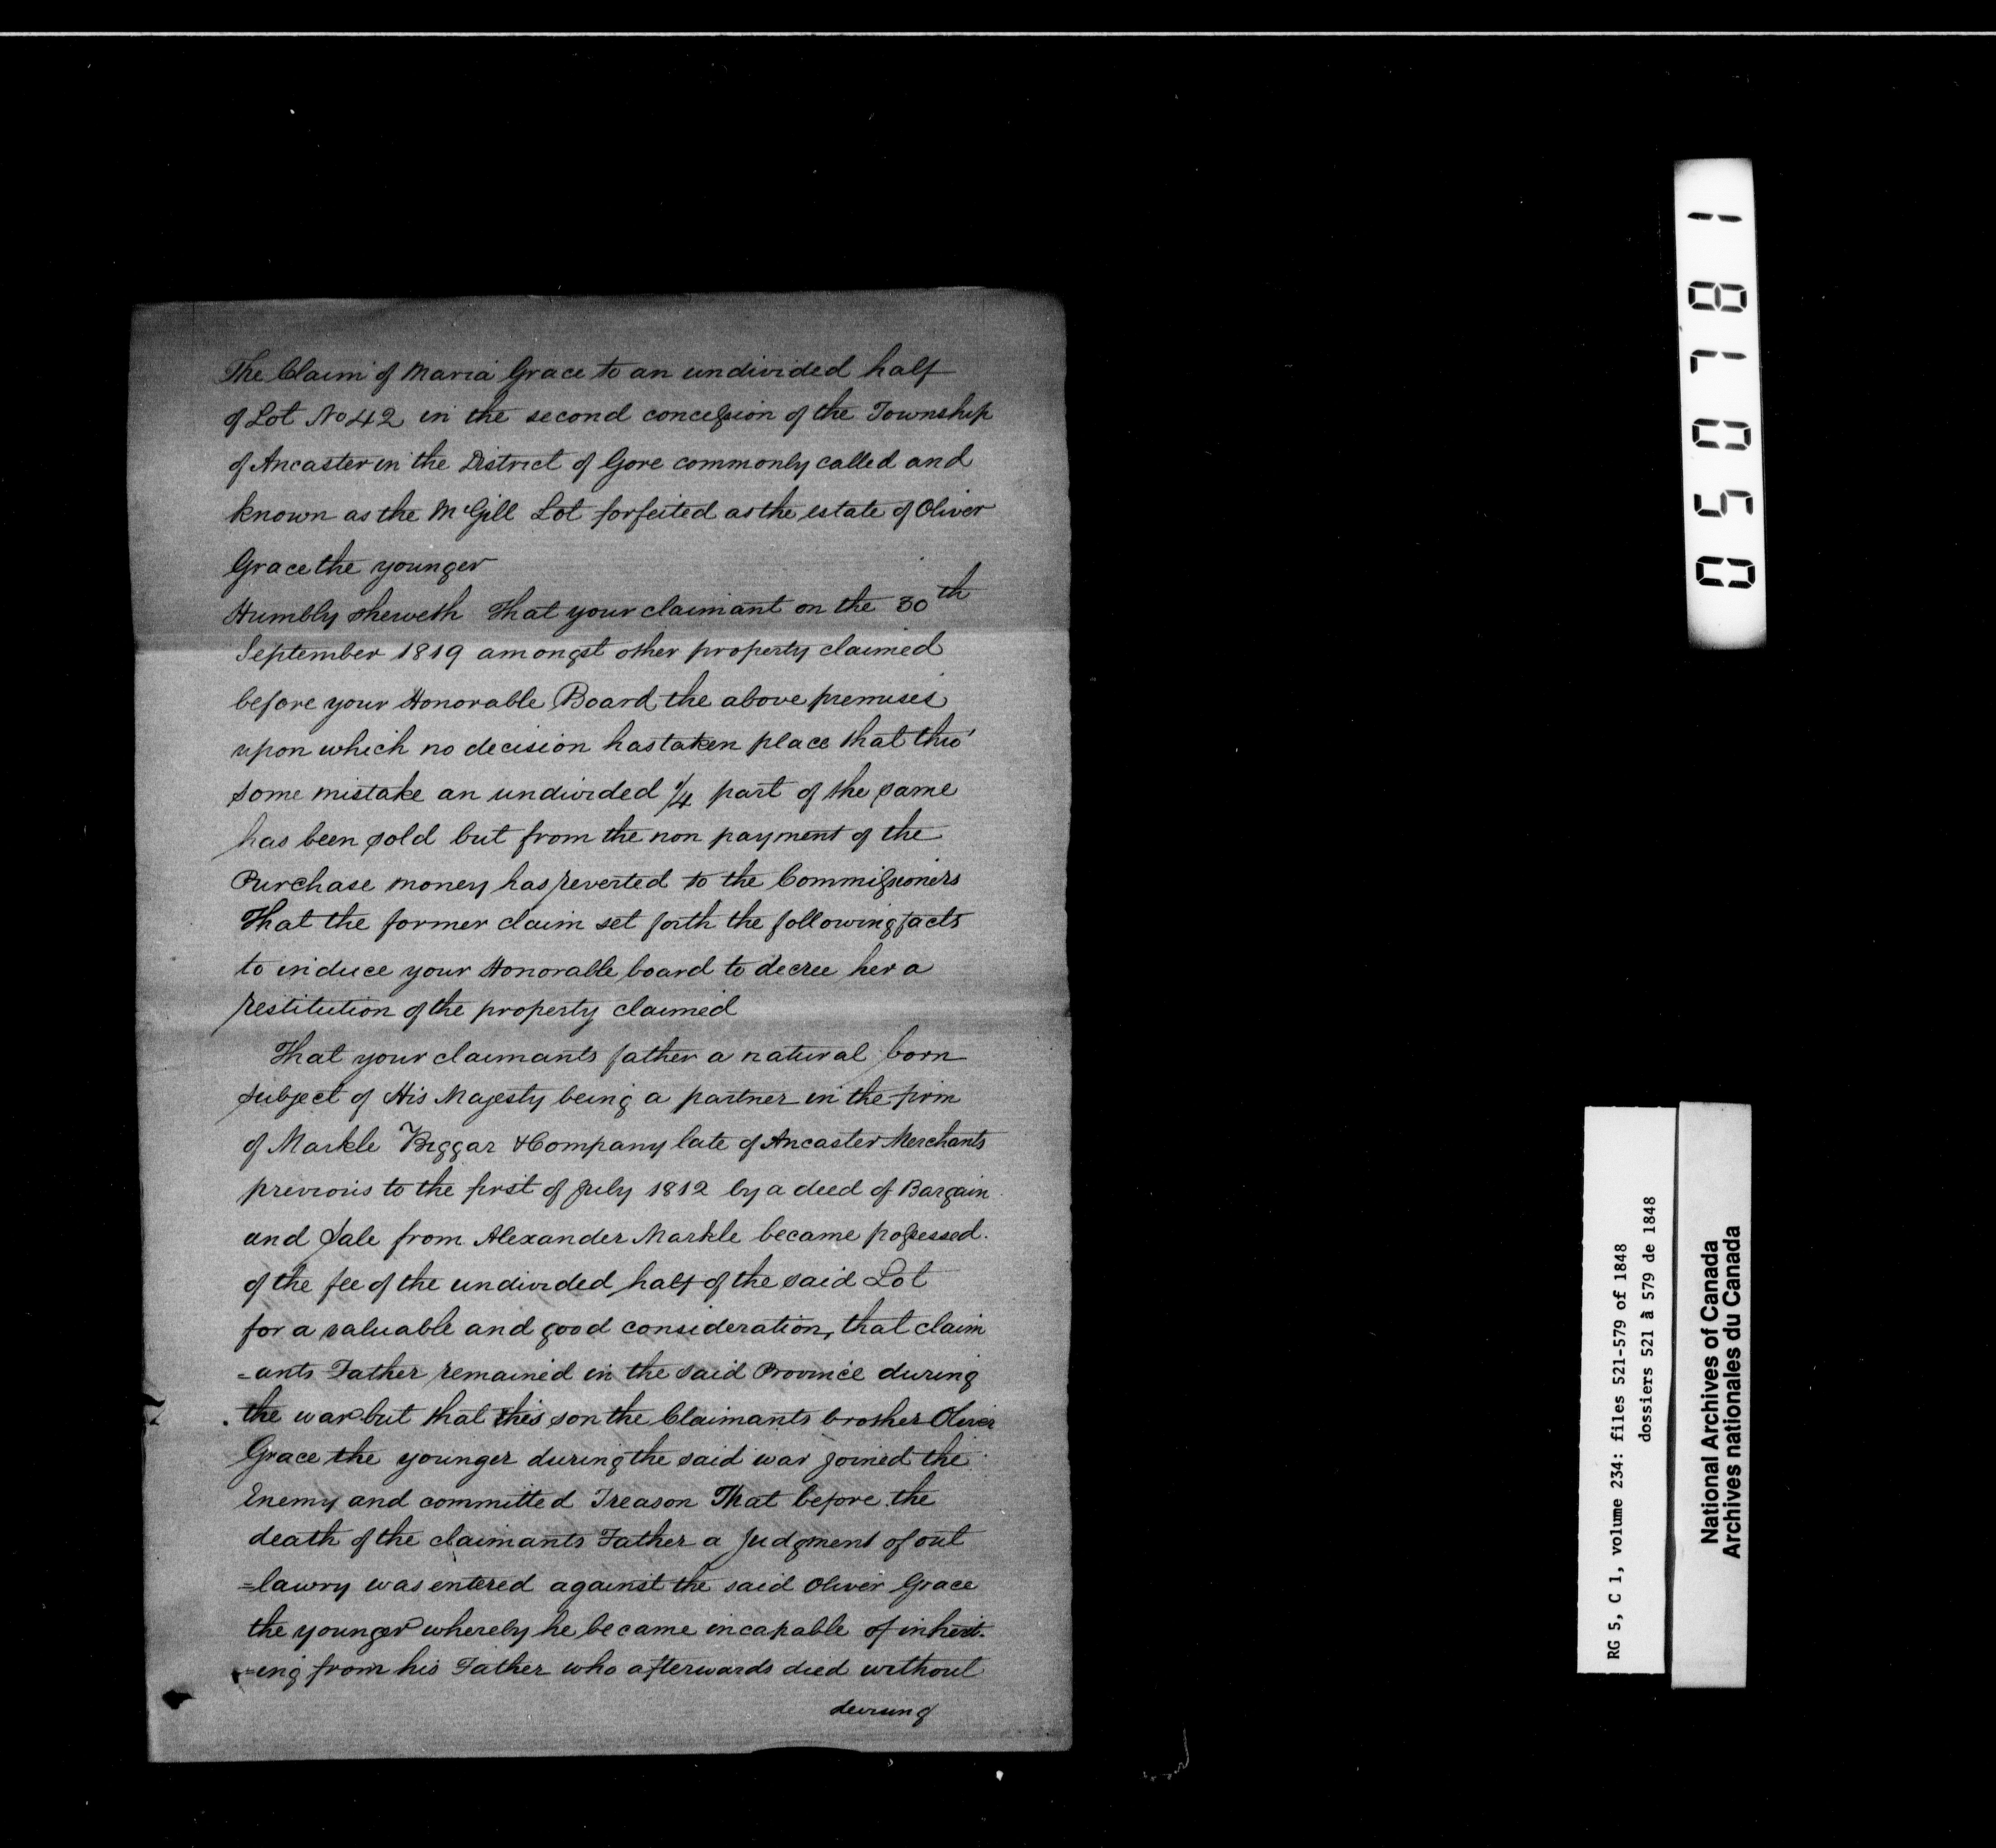 The Claim of Maria Grace to an undivided half
of Lot No 42 in the second concession of the Township
of Ancaster in the District of Gore commonly called and
known as the McGill Lot forfeited as the estate of Oliver
Grace the younger
Humbly sheweth That your claimant on the 30th
September 1819 amongst other property claimed
before your Honorable Board the above premises
upon which no decision has taken place that thro'
some mistake an undivided 1/4 part of the same
has been sold but from the non payment of the
Purchase money has reverted to the Commissioners
That the former claim set forth the following facts
to induce your Honorable board to decree her a
restitution of the property claimed
That your claimants father a natural born
subject of His Majesty being a partner in the firm
of Markle Biggar & Company late of Ancaster Merchants
previous to the first of July 1812 by a deed of Bargain
and Sale from Alexander Markle became possessed.
of the fee of the undivided half of the said Lot
for a valuable and good consideration, that claim
=ants Father remained in the said Province during
the war but that his son the Claimants brother Oliver
Grace the younger during the said war joined the
Enemy and committed Treason That before the
death of the claimants Father a Judgment of out
=lawry was entered against the said Oliver Grace
the younger whereby he became incapable of inherit-
=ing from his Father who afterwards died without
devising
050781
RG 5, C 1, volume 234: files 521-579 of 1848
dossiers 521 à 579 de 1848
National Archives of Canada
Archives nationales du Canada